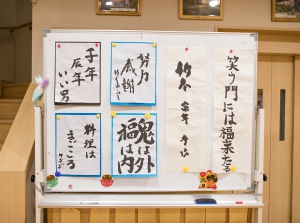 笑う門には福来たる
努力
感謝
子年
辰年
いい男
鬼は外
福は内
料理は
まごころ